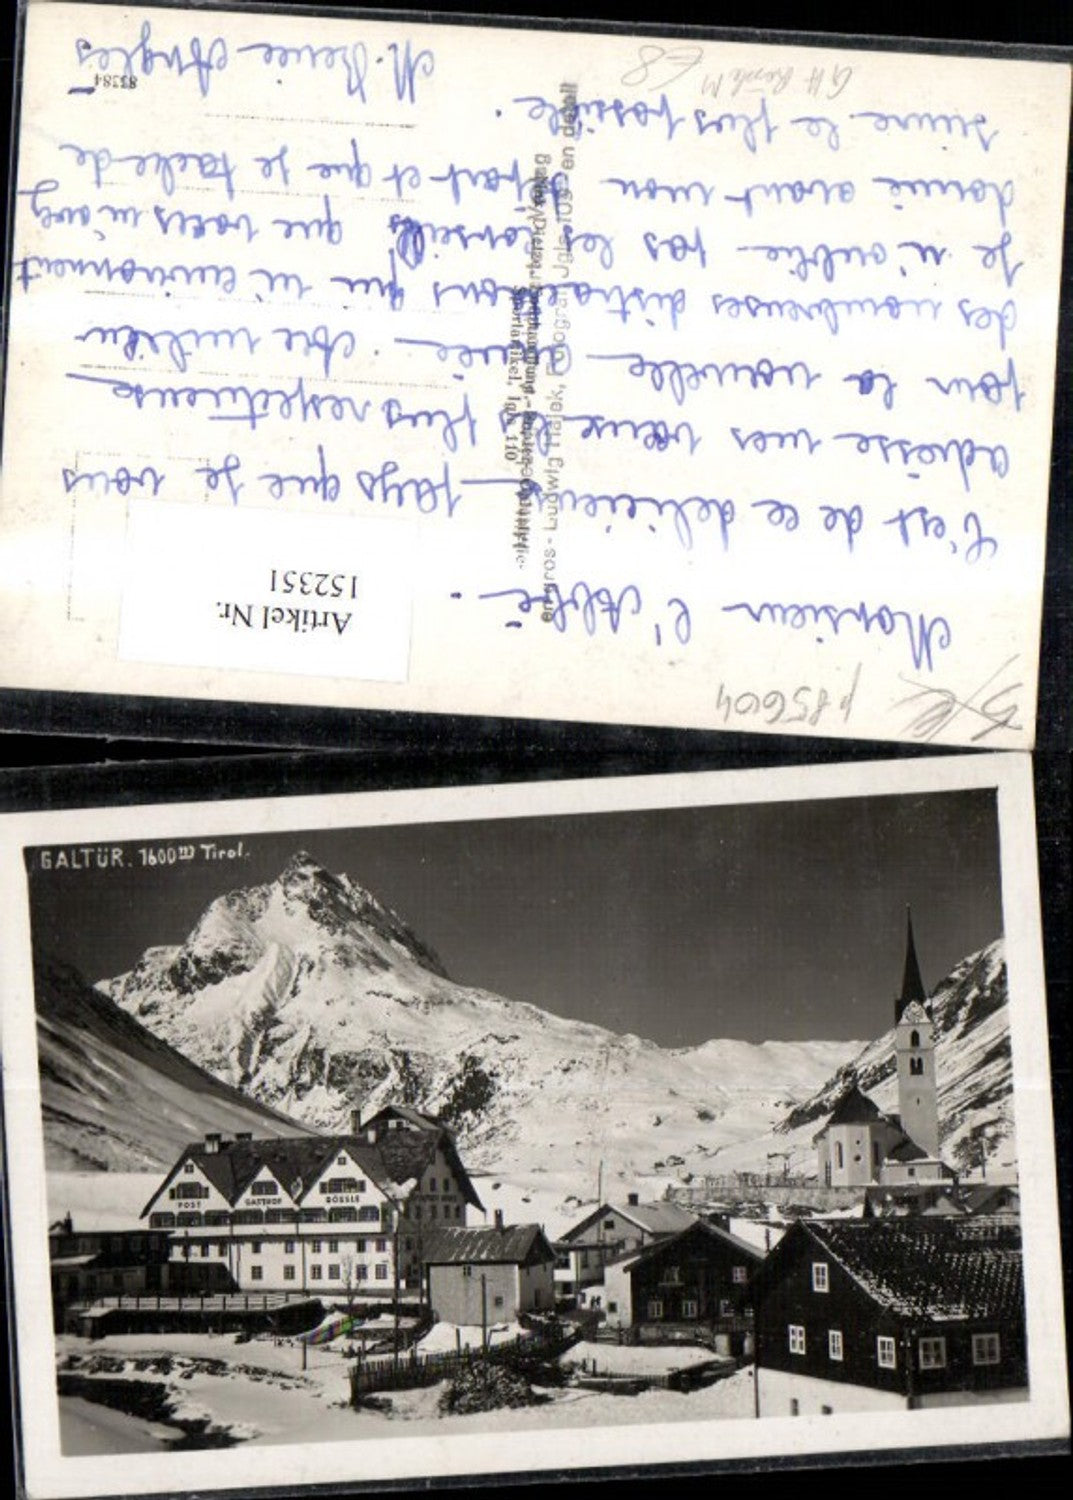 Monsieur l'Abbé.
C'est de ce delicieux pays que je vous
adresse mes vœux les plus respectueux
pour la nouvelle année. Au milieu
des nombreuses distractions qui m'environnent
je n'oublie pas les conseils que vous m'avez
donné avant mon départ et que je tache de
suivre le plus possible.
M. Angles
Artikel Nr.
152351
p85604
83384
GH Rössle
en gros - Ludwig Hajek, Fotograf, en detail
Sportartikel, Igls 110
GALTÜR. 1600m Tirol.
POST
GASTHOF
RÖSSLE